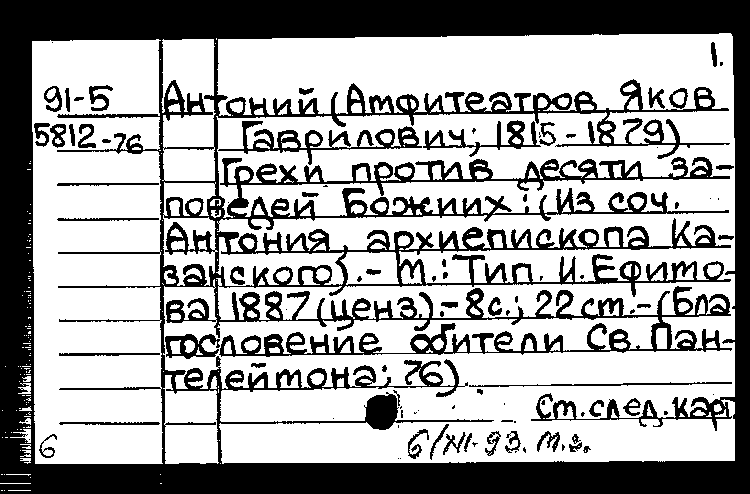 1.
91-5 Антоний (Амфитеатров, Яков
5812-76 Гаврилович; 1815-1879).
Грехи против десяти за-
поведей Божиих : (Из соч.
Антония, архиепископа Ка-
занского).- М.: Тип. И.Ефимо-
ва, 1887 (ценз).- 8с.; 22 см.- (Бла-
гословение обители Св. Пан-
телеймона; 76).
См.след.карт.
6 6/XII-93. М.З.